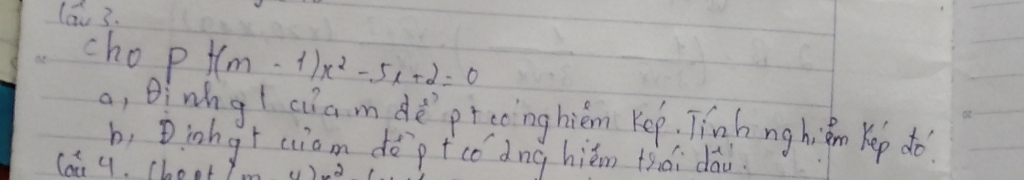 Câu 3.
cho pt(m - 1)x² - 5x + 2 = 0
a, Định gt của m để pt có nghiêm kép. Tính nghiệm kép đó.
b, Định gt của m để pt có 2 nghiêm trái dấu.
Câu 4. Cho pt (m 4)x²